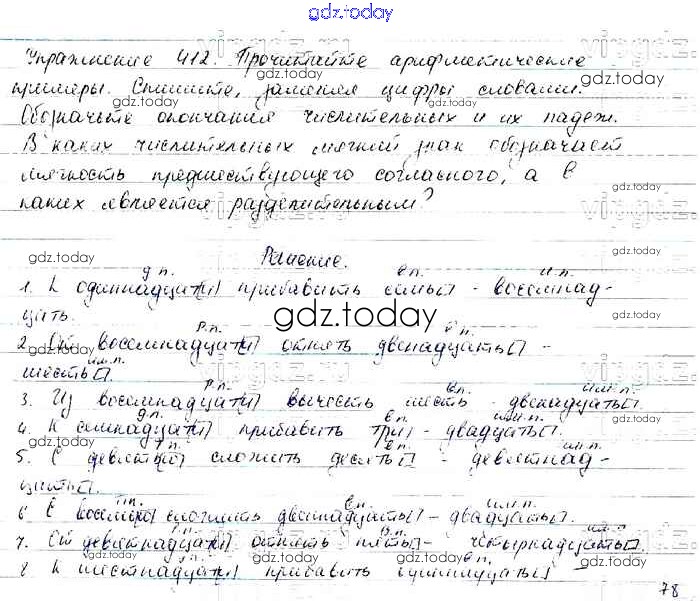 gdz.today
Упражнение 412. Прочитайте арифметические
примеры. Спишите, заменяя цифры словами.
Обозначьте окончания числительных и их падеж.
В каких числительных мягкий знак обозначает
мягкость предшествующего согласного, а в
каких является разделительным?
Решение.
д.п. в.п. и.п.
1. К одиннадцати прибавить семь - восемнад-
цать.
gdz.today
Р.п. в.п.
2. От восемнадцати отнять двенадцать -
шесть. им.п.
Р.п. в.п. им.п.
3. Из восемнадцати вычесть шесть - двенадцать.
д.п. в.п. им.п.
4. К семнадцати прибавить три - двадцать.
в.п. им.п.
5. С девятью сложить десять - девятнад-
цать.
в.п. им.п.
6 С восемью сложить двенадцать - двадцать.
Р.п. в.п. им.п.
7. От девятнадцати отнять пять - четырнадцать.
8 К шестнадцати прибавить
78